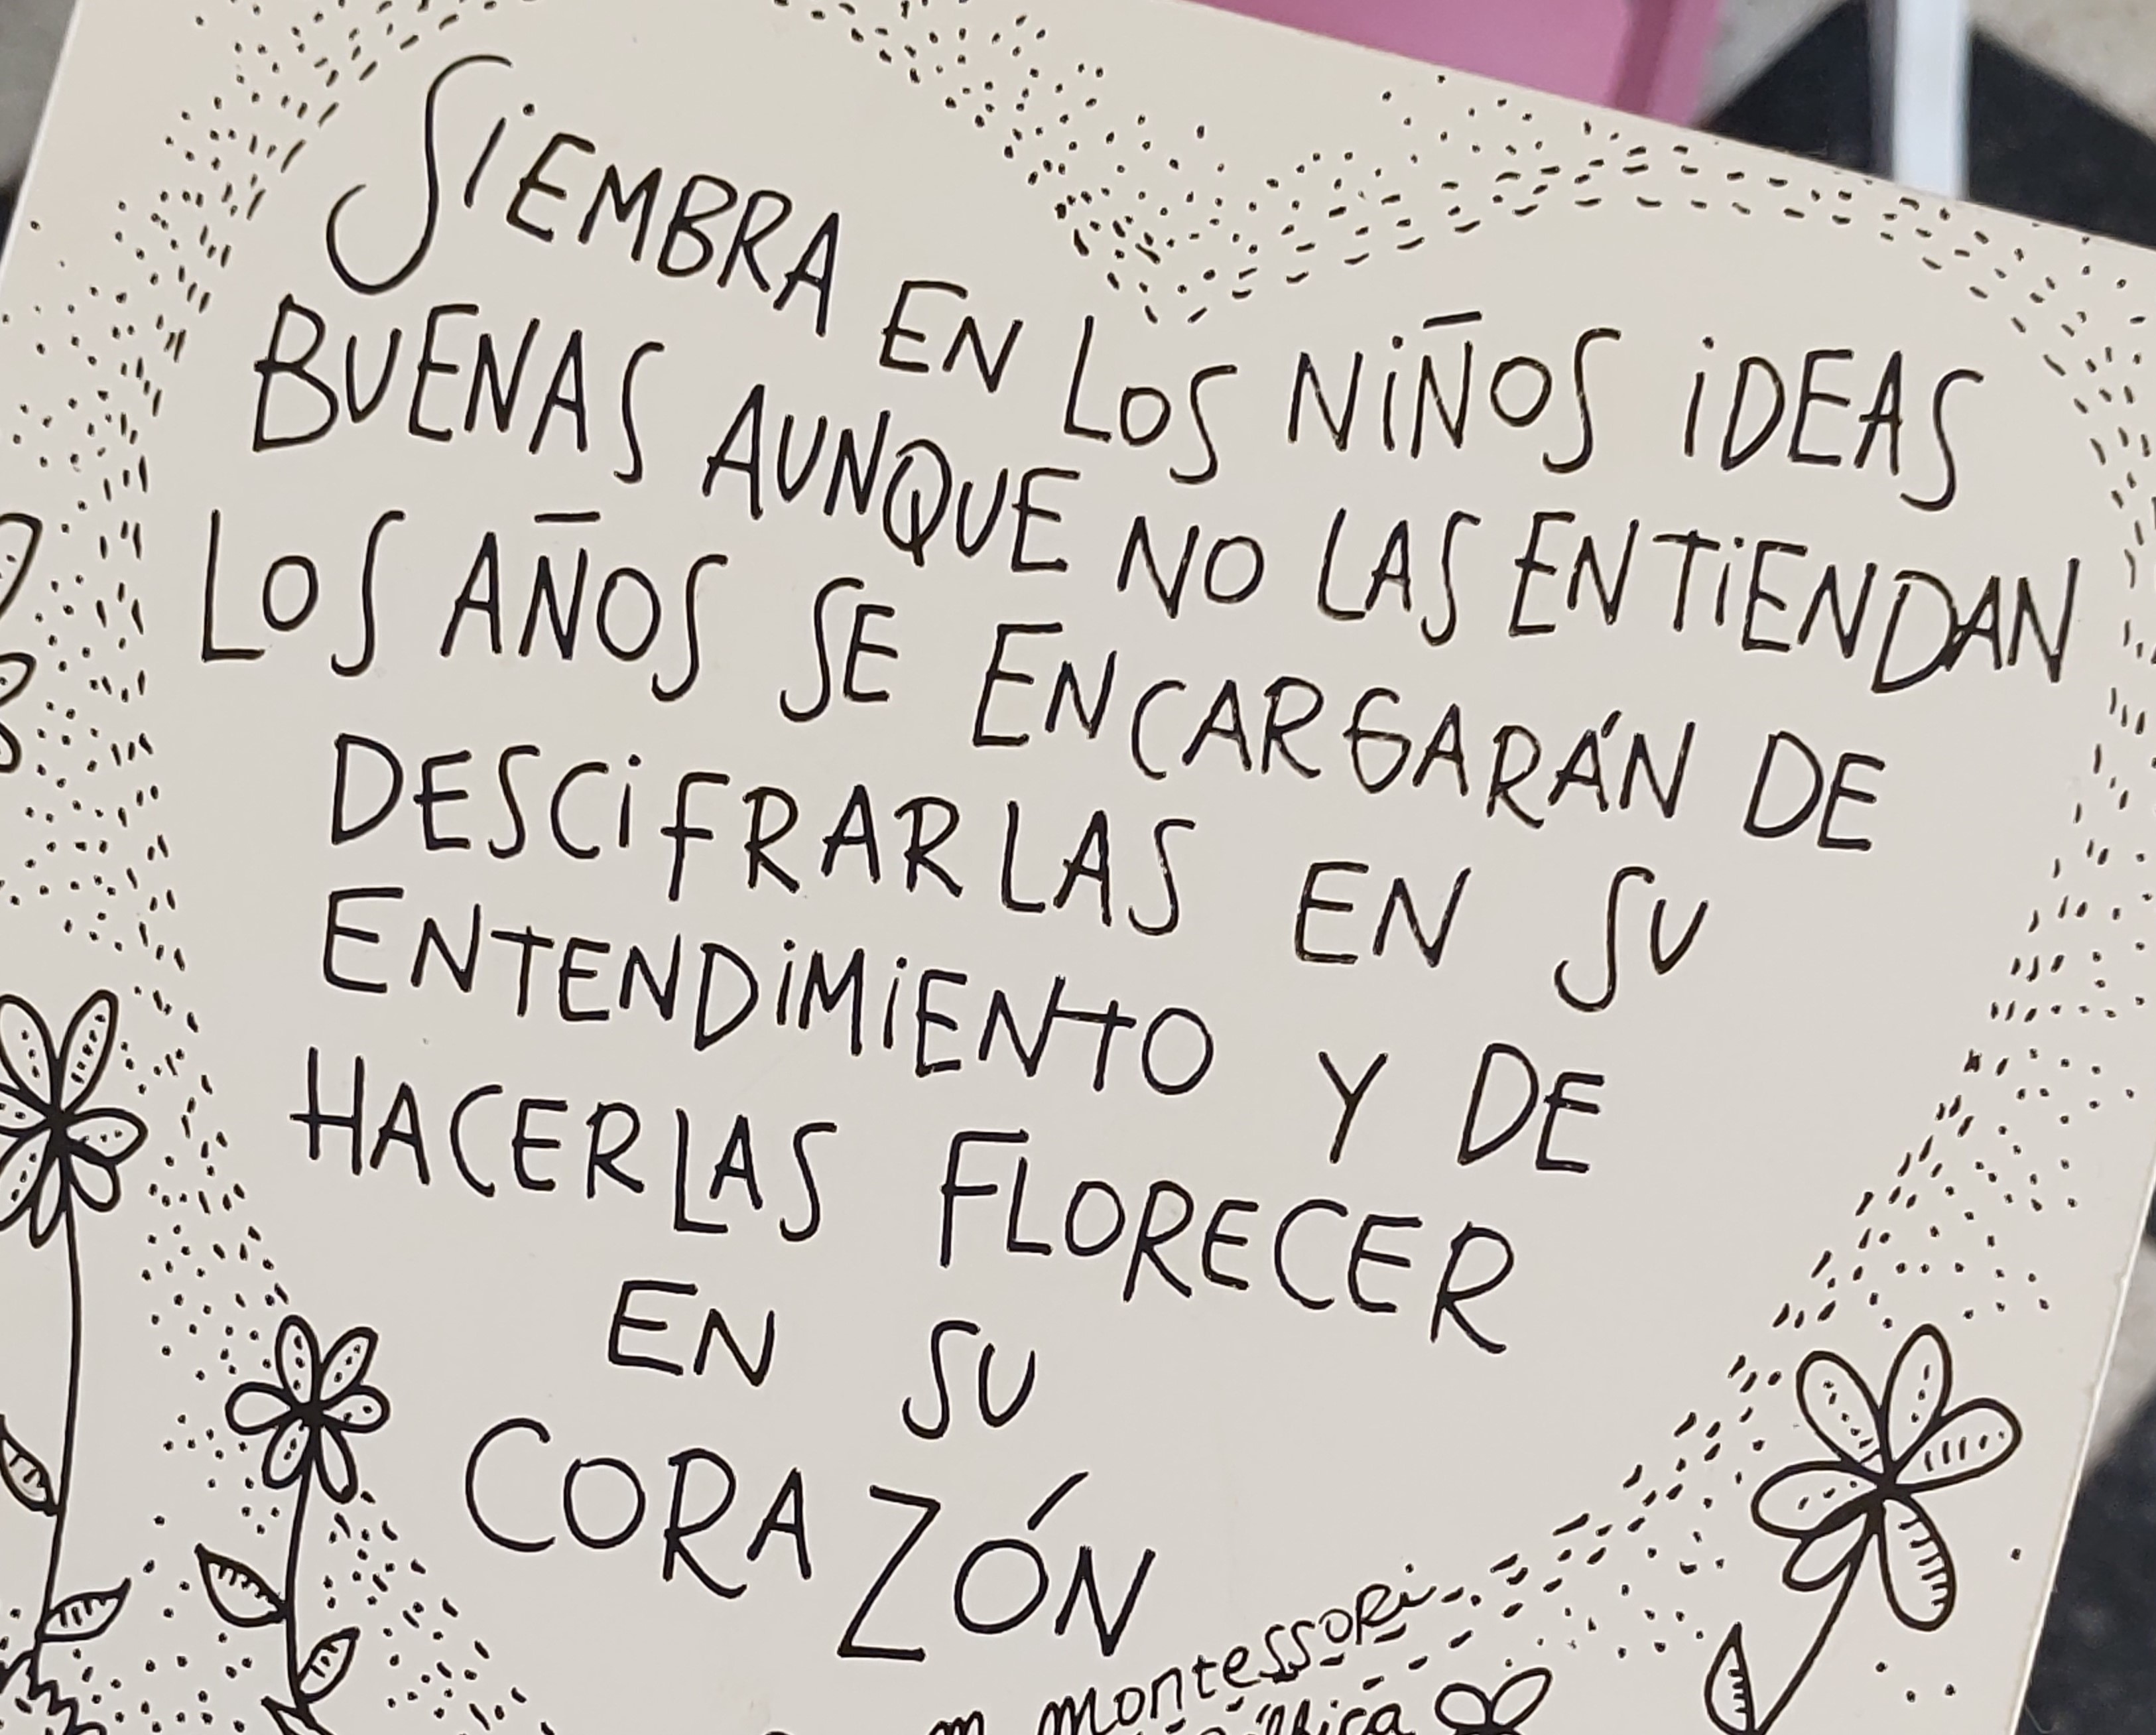 SiEMBRA EN LOS NIÑOS iDEAS
BUENAS AUNQUE NO LAS ENTIENDAN
LOS AÑOS SE ENCARGARÁN DE
DESCIFRARLAS EN SU
ENTENDIMIENTO Y DE
HACERLAS FLORECER
EN SU
CORAZÓN
m montessori